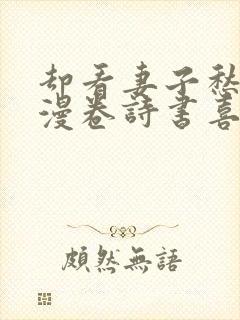 却看妻子愁
漫卷詩書喜
頗然無語